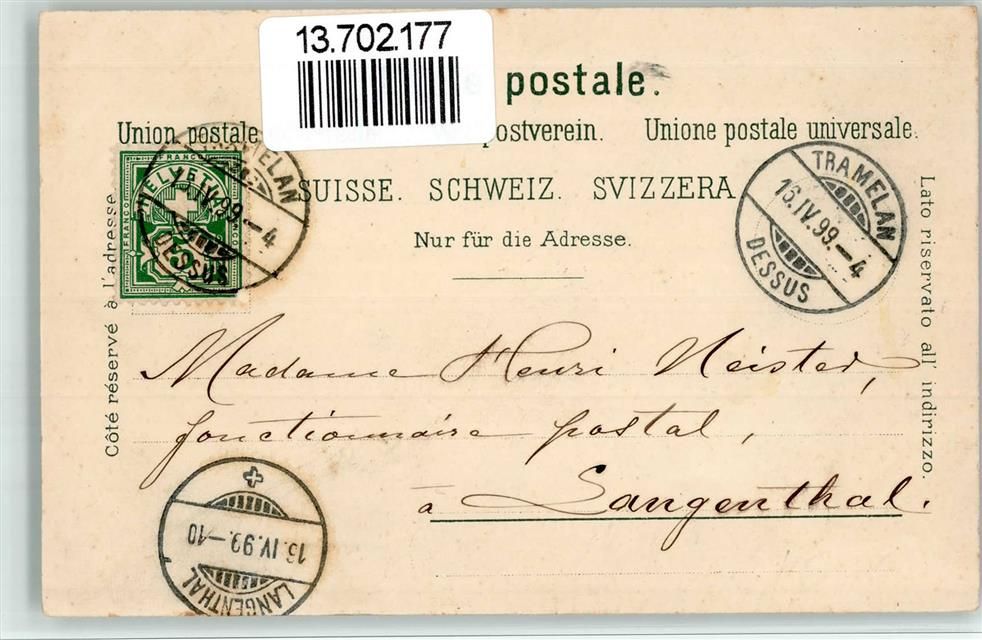 13.702.177
postale.
Union postale ostverein. Unione postale universale.
SUISSE. SCHWEIZ. SVIZZERA
Nur für die Adresse.
Côté réservé à l'adresse.
Lato riservato all' indirizzo.
FRANCO
HELVETIA
FRANCO
5
TRAMELAN
IV.99.–4
DESSUS
TRAMELAN
16.IV.99.–4
DESSUS
Madame Henri Meister,
fonctionnaire postal,
à Langenthal.
16.IV.99.–10
LANGENTHAL